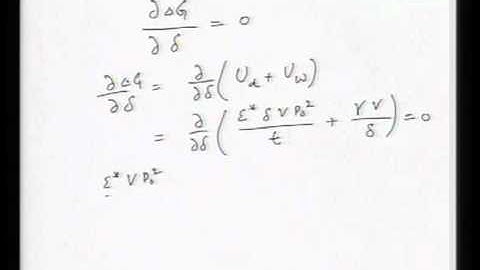 ∂ΔG/∂δ = 0
∂ΔG/∂δ = ∂/∂δ (U_d + U_w)
= ∂/∂δ (Σ* δ V P₀²/t + γ V/δ) = 0
Σ* V P₀²